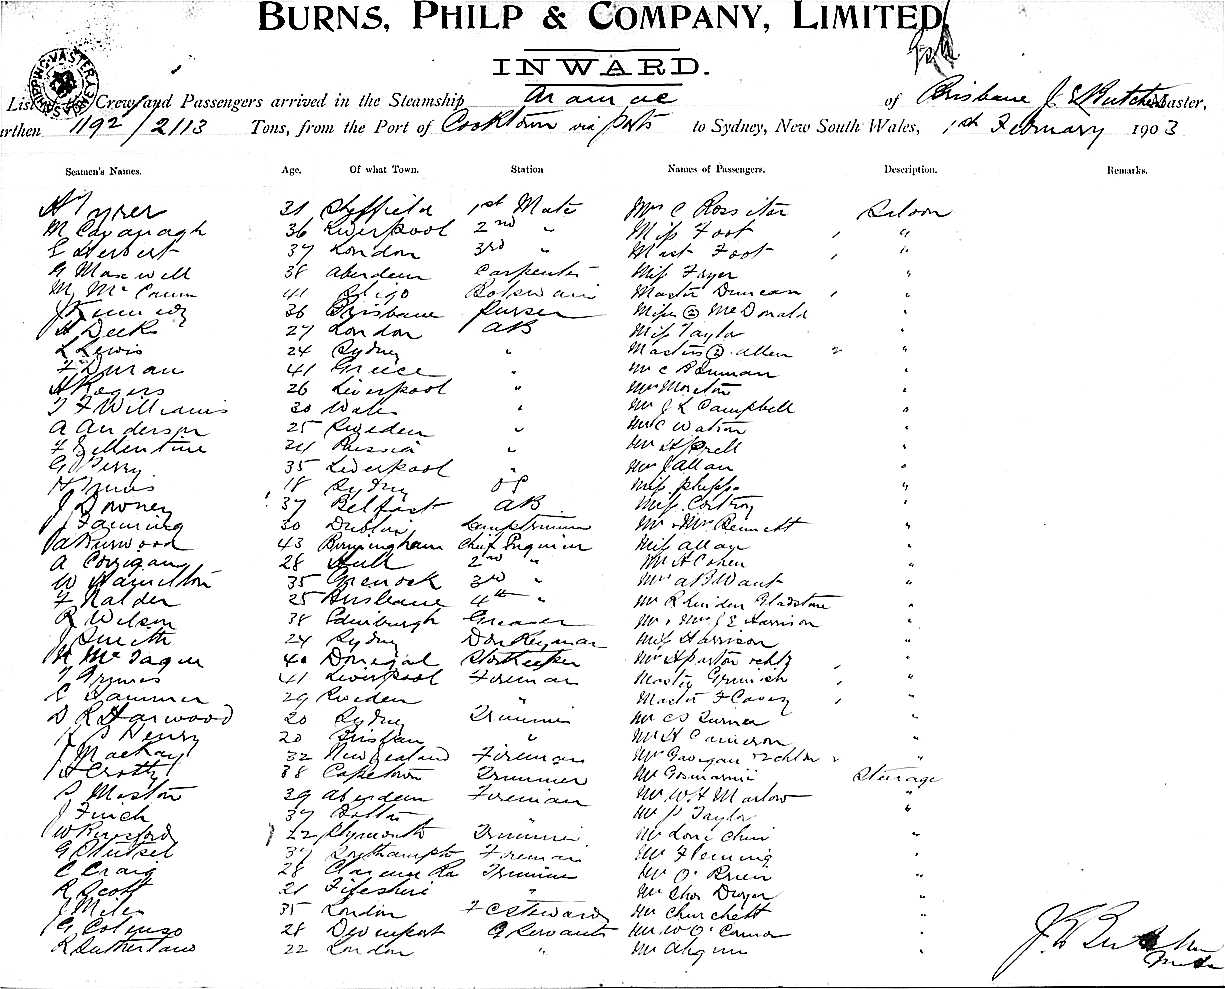 BURNS, PHILP & COMPANY, LIMITED.
INWARD.
List Crew and Passengers arrived in the Steamship Aramac of Brisbane J. Butcher Master,
Burthen 1192/2113 Tons, from the Port of Cooktown via ports to Sydney, New South Wales, 1st February 1903
Seamen's Names. Age. Of what Town. Station Names of Passengers. Description. Remarks.
31 Sheffield 1st Mate Mrs C Rossiter Saloon
M Cavanagh 36 Liverpool 2nd " Miss Foot "
E Herbert 37 London 3rd " Mast Foot "
G Maxwell 38 Aberdeen Carpenter Miss Fryer "
M McCann 41 Sligo Botswain Master Duncan "
J Kennedy 36 Brisbane Purser Miss (2) McDonald "
H Deeks 27 London AB Miss Taylor "
L Lewis 24 Sydney " Masters (2) Allen "
F Duran 41 Greece " Mr C
H Rogers 26 Liverpool " Mrs Moreton "
T F Williams 30 Wales " Mr J L Campbell "
A Anderson 25 Sweden " Mr C Watson "
F 24 Russia " Mr
G Perry 35 Liverpool " Mr J Allan "
18 Sydney OS Miss Phipps "
J Downey 37 Belfast AB Miss "
J Fanning 30 Dublin Lamptrimmer Mr & Mrs Bennett "
A Burwood 43 Birmingham Chief Engineer Miss Allan "
A Corrigan 28 Hull 2nd " Mr H Cohen "
W Hamilton 35 Greenock 3rd " Mrs A B Want "
F Nalder 25 Brisbane 4th " Mr R Lindon Gladstone "
R Wilson 38 Edinburgh Greaser Mr & Mrs J E Harrison "
J Smith 24 Sydney Donkeyman Miss Harrison "
40 Donegal Storekeeper Mrs "
T Grimes 41 Liverpool Fireman Master "
C Hammer 29 Sweden " Master F Casey "
D R Harwood 20 Sydney Trimmer Mr C S Turner "
Henry 20 " Mr H Cameron "
J Mackay 32 New Zealand Fireman Mrs
Crotty 38 Capetown Trimmer Mr Steerage
S Moston 39 Aberdeen Fireman Mr W H Marlow "
J Finch 37 " Mr P Taylor
W 22 Plymouth Trimmer Mr "
G 37 Fireman Mr Fleming
C Craig 28 Clarence Trimmer Mr O'Brien "
R Scott 21 Fifeshire " Mr Chas Dwyer "
J Miles 35 London F C Steward Mr Churchett "
G Colenso 28 Devonport G Servants Mr W O'Connor
R Sutherland 22 London " Mr
J. Butcher
Master